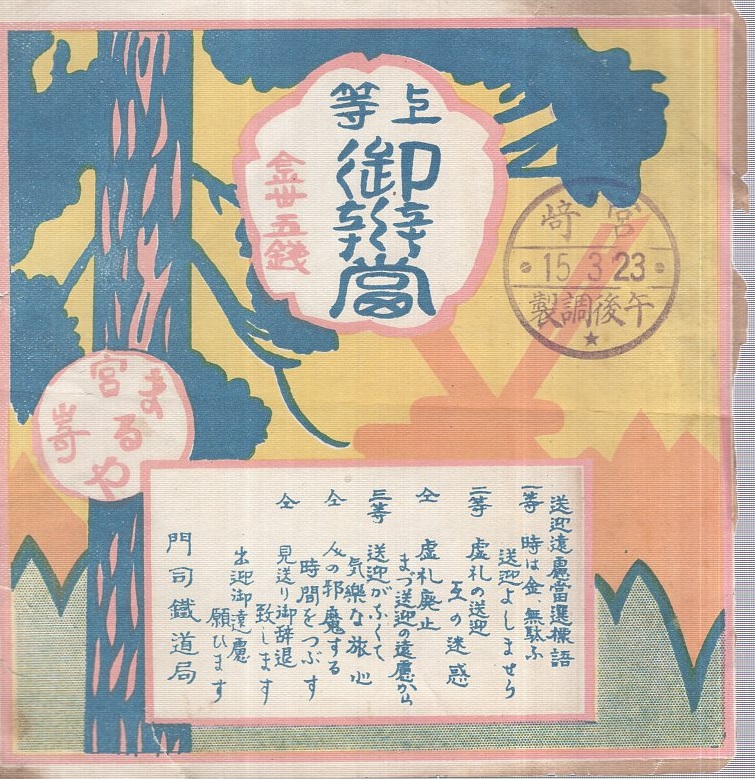 上等
御辨當
金丗五錢
宮崎
15.3.23
午後調製
まるや
宮崎
送迎遠慮當選標語
一等 時は金、無駄な
送迎よしませう
二等 虚礼の送迎
互の迷惑
仝 虚礼廃止
まづ送迎の遠慮から
三等 送迎がなくて
気楽な旅心
仝 人の邪魔する
時間をつぶす
仝 見送り御辞退
致します
出迎御遠慮
願ひます
門司鐵道局